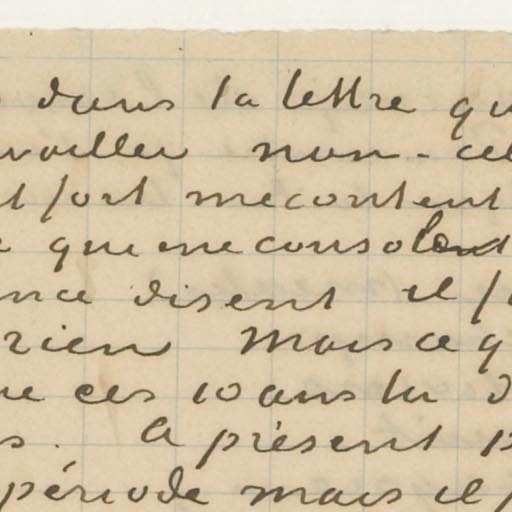 dans la lettre qu
vailler non - cel
t fort mecontent
que me consolent
nce disent il f
rien Mais ce q
ue ces 10 ans tu d
s. A présent p
période mais il f